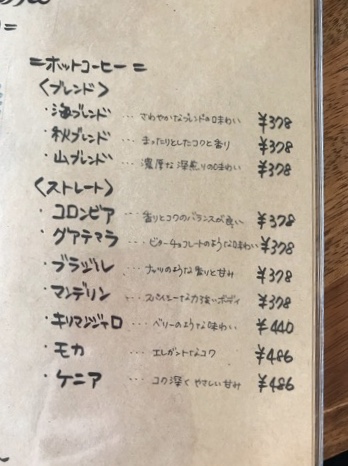 =ホットコーヒー=
〈ブレンド〉
・海ブレンド … さわやかなブレンドの味わい ¥378
・秋ブレンド … まったりとしたコクと香り ¥378
・山ブレンド … 濃厚な深煎りの味わい ¥378
〈ストレート〉
・コロンビア … 香りとコクのバランスが良い ¥378
・グアテマラ … ビターチョコレートのような味わい ¥378
・ブラジル … ナッツのような香りと甘み ¥378
・マンデリン … スパイシーな力強いボディ ¥378
・キリマンジャロ … ベリーのような味わい ¥440
・モカ … エレガントなコク ¥486
・ケニア … コク深くやさしい甘み ¥486